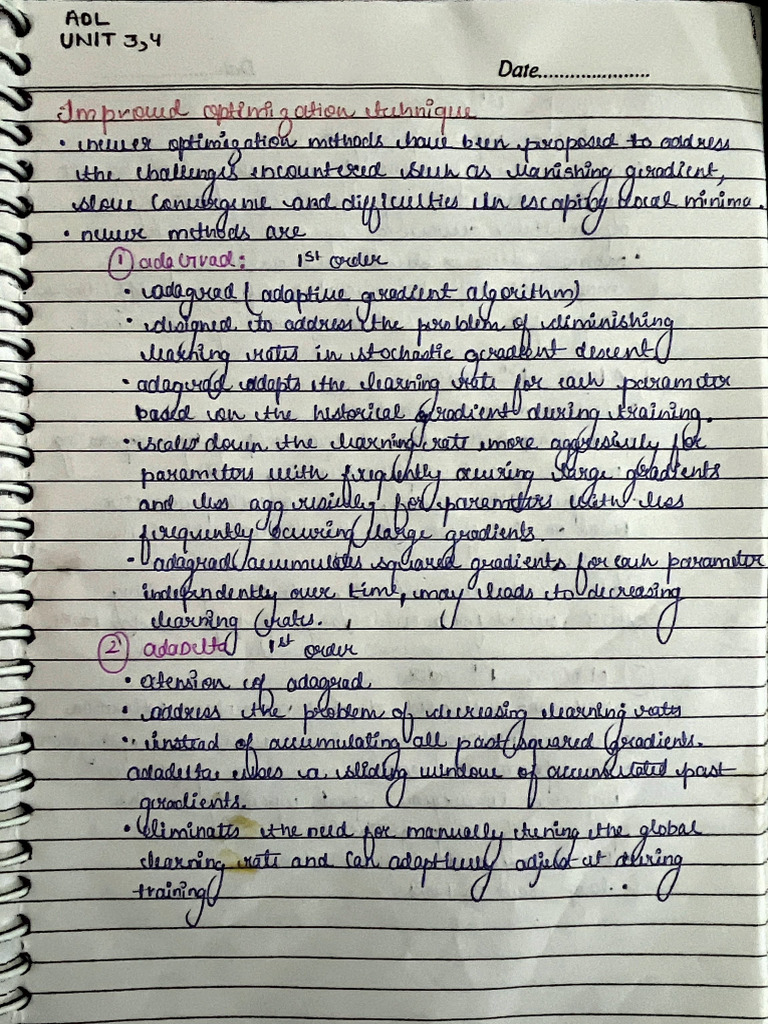 ADL
UNIT 3,4
Date.....................
Improved optimization technique
• newer optimization methods have been proposed to address
the challenges encountered such as vanishing gradient,
slow convergence and difficulties in escaping local minima.
• newer methods are
① adaGrad: 1st order
• adagrad (adaptive gradient algorithm)
• designed to address the problem of diminishing
learning rates in stochastic gradient descent
• adagrad adapts the learning rate for each parameter
based on the historical gradient during training.
• scales down the learning rate more aggresively for
parameters with freqently occuring large gradients
and less aggresively for parameters with less
frequently occuring large gradients.
• adagrad accumulates squared gradients for each parameter
independently over time, may leads to decreasing
learning rates.
② adaDelta 1st order
• etension of adagrad
• address the problem of decreasing learning rates
• instead of accumulating all past squared gradients.
adadelta uses a sliding window of accumulated past
gradients.
• eliminates the need for manually tuning the global
learning rate and can adaptively adjust it during
training